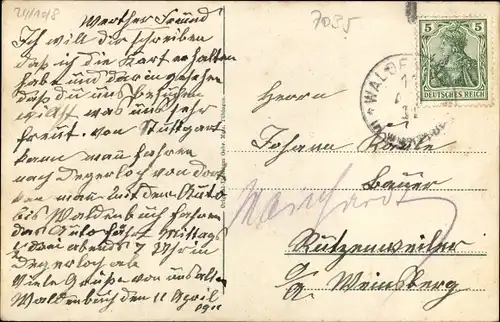 24/108
Werther Freund
Ich will dir schreiben
daß ich die Kart erhalten
habe und darin gesehen
daß du uns besuchen
willst was uns sehr
freut. von Stuttgart
kann man fahren
nach Degerloch von dort
kan man mit dem Auto
bis Waldenbuch fahren
das Auto fährt Mittags
abends 7 Uhr in
Degerloch ab
Viele Grüße von uns allen
Waldenbuch den 11 April
7035
5 5
DEUTSCHES REICH
WALDE
Herrn
Johann
Bauer
Weinsberg